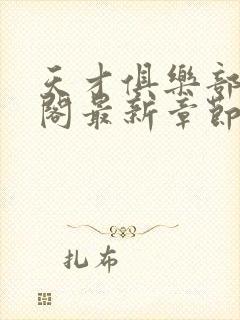 天才俱樂部
閣最新章節
扎布